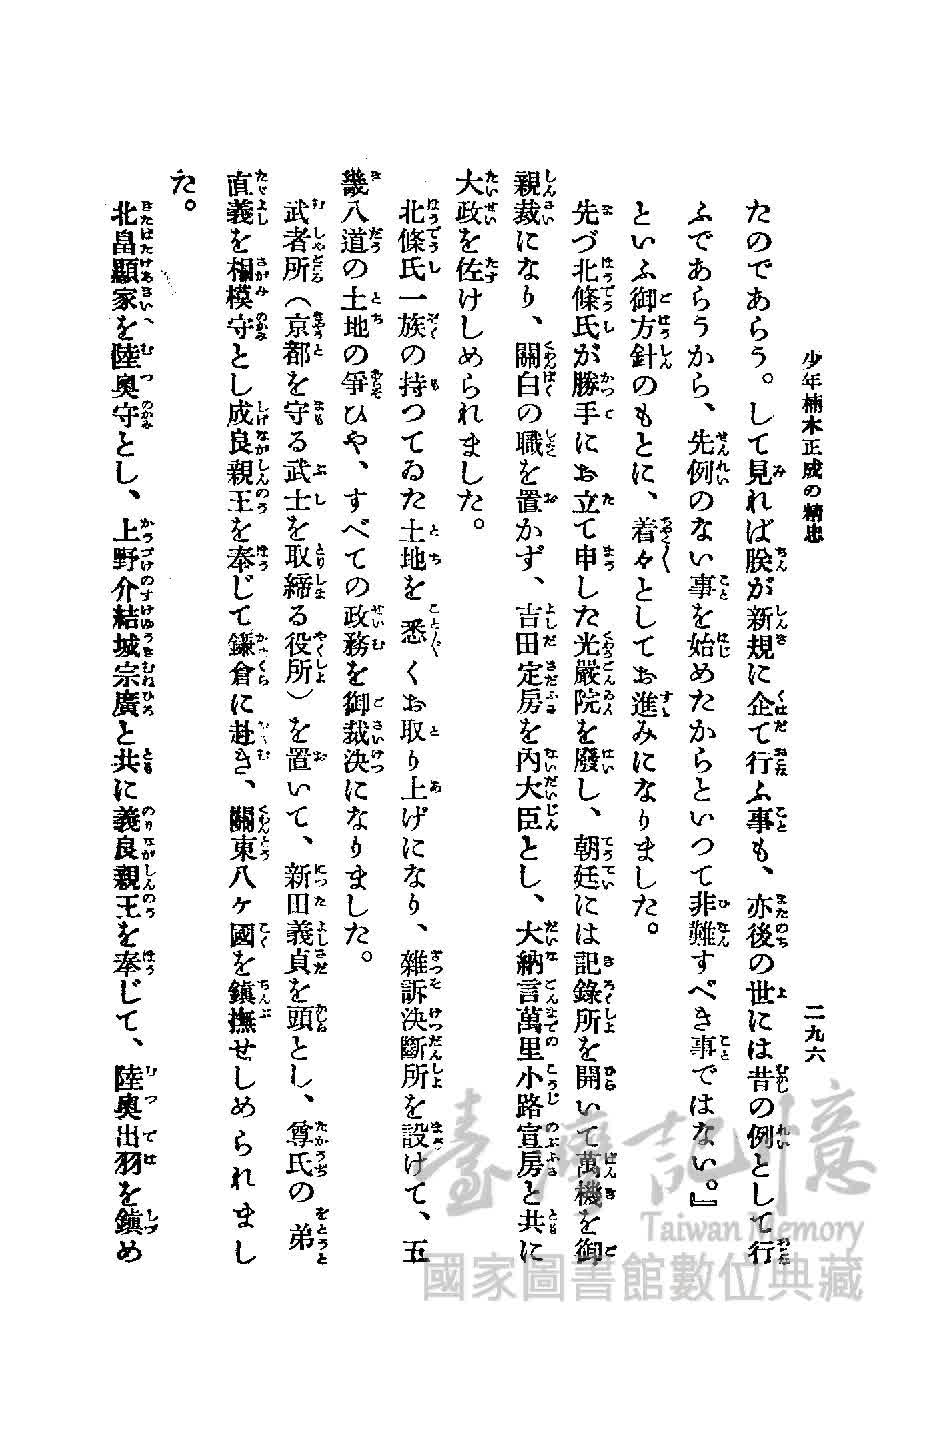 少年楠木正成の精忠
二九六
たのであらう。して見れば朕が新規に企て行ふ事も、亦後の世には昔の例として行
ふであらうから、先例のない事を始めたからといつて非難すべき事ではない。』
といふ御方針のもとに、着々としてお進みになりました。
先づ北條氏が勝手にお立て申した光嚴院を廢し、朝廷には記錄所を開いて萬機を御
親裁になり、關白の職を置かず、吉田定房を內大臣とし、大納言萬里小路宣房と共に
大政を佐けしめられました。
北條氏一族の持つてゐた土地を悉くお取り上げになり、雜訴決斷所を設けて、五
畿八道の土地の爭ひや、すべての政務を御裁決になりました。
武者所(京都を守る武士を取締る役所)を置いて、新田義貞を頭とし、尊氏の弟
直義を相模守とし成良親王を奉じて鎌倉に赴き、關東八ヶ國を鎭撫せしめられまし
た。
北畠顯家を陸奧守とし、上野介結城宗廣と共に義良親王を奉じて、陸奧出羽を鎭め
臺灣記憶
Taiwan Memory
國家圖書館數位典藏